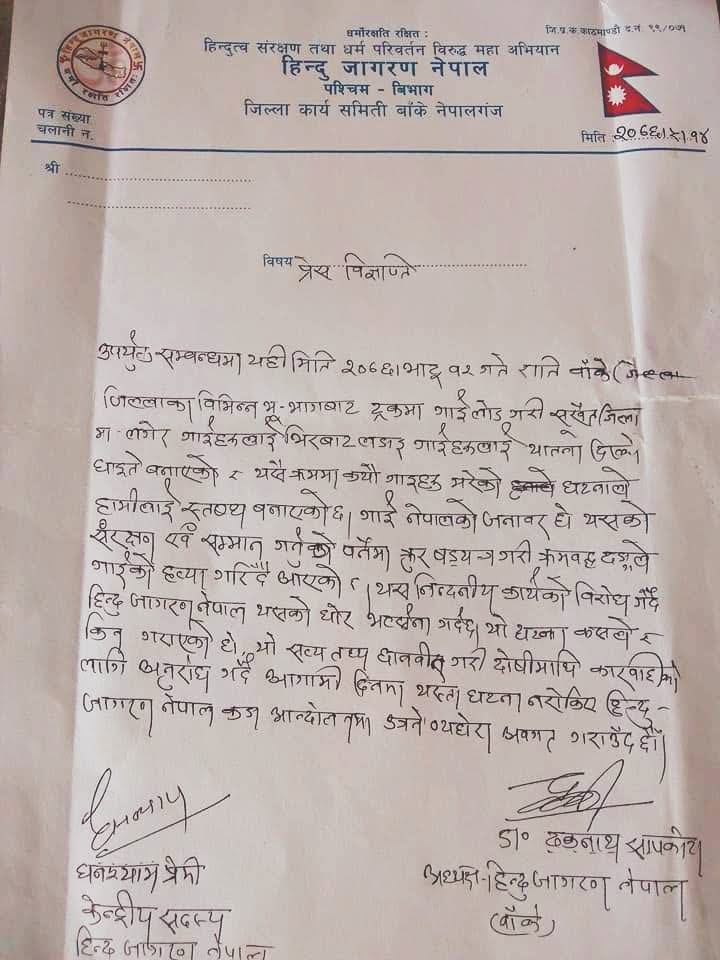 धर्मोरक्षति रक्षितः
जि.प्र.का.काठमाण्डौ द.नं ११/०७५
हिन्दुत्व संरक्षण तथा धर्म परिवर्तन विरुद्ध महा अभियान
हिन्दु जागरण नेपाल
पश्चिम - बिभाग
जिल्ला कार्य समिती बाँके नेपालगंज
हिन्दु जागरण नेपाल
धर्मो रक्षति रक्षितः
पत्र संख्या
चलानी न.
मिति
श्री
विषय प्रेस विज्ञप्ति
उपर्युक्त सम्बन्धमा यही मिति २०७६ भाद्र १२ गते राति बाँके जिल्ला
जिल्लाका विभिन्न भू-भागबाट ट्रकमा गाई लोड गरी सुर्खेत जिल्ला
मा लगेर गाईहरूलाई भिरबाट लडाइ गाईहरूलाई यातना दिल्ने
घाइते बनाएको र यसै क्रममा कयौ गाइहरु मरेको घटनाले
हामीलाई स्तब्ध बनाएको छ। गाई नेपालको जनावर हो यसको
संरक्षण एवं सम्मान गर्नुको पर्तमा क्रुर षड्यन्त्र गरी क्रमवद्ध ढङ्गले
गाईको हत्या गरिदै आएको र यस निन्दनीय कार्यको विरोध गर्दै
हिन्दु जागरण नेपाल यसको घोर भर्त्सना गर्दछ यो घटना कसले र
किन गराएको हो, यो सत्य तथ्य छानवीन गरी दोषीमाथि कारवाहीको
लागि अनुरोध गर्दै आगामी दिनमा यस्ता घटना नरोकिए हिन्दु-
जागरण नेपाल कडा आन्दोलनमा उत्रने व्यहोरा अवगत गराउँदछौं।
घनश्याम प्रेमी
केन्द्रीय सदस्य
हिन्दु जागरण नेपाल
डा॰ ढकनाथ सापकोटा
अध्यक्ष-हिन्दु जागरण नेपाल
(बाँके)